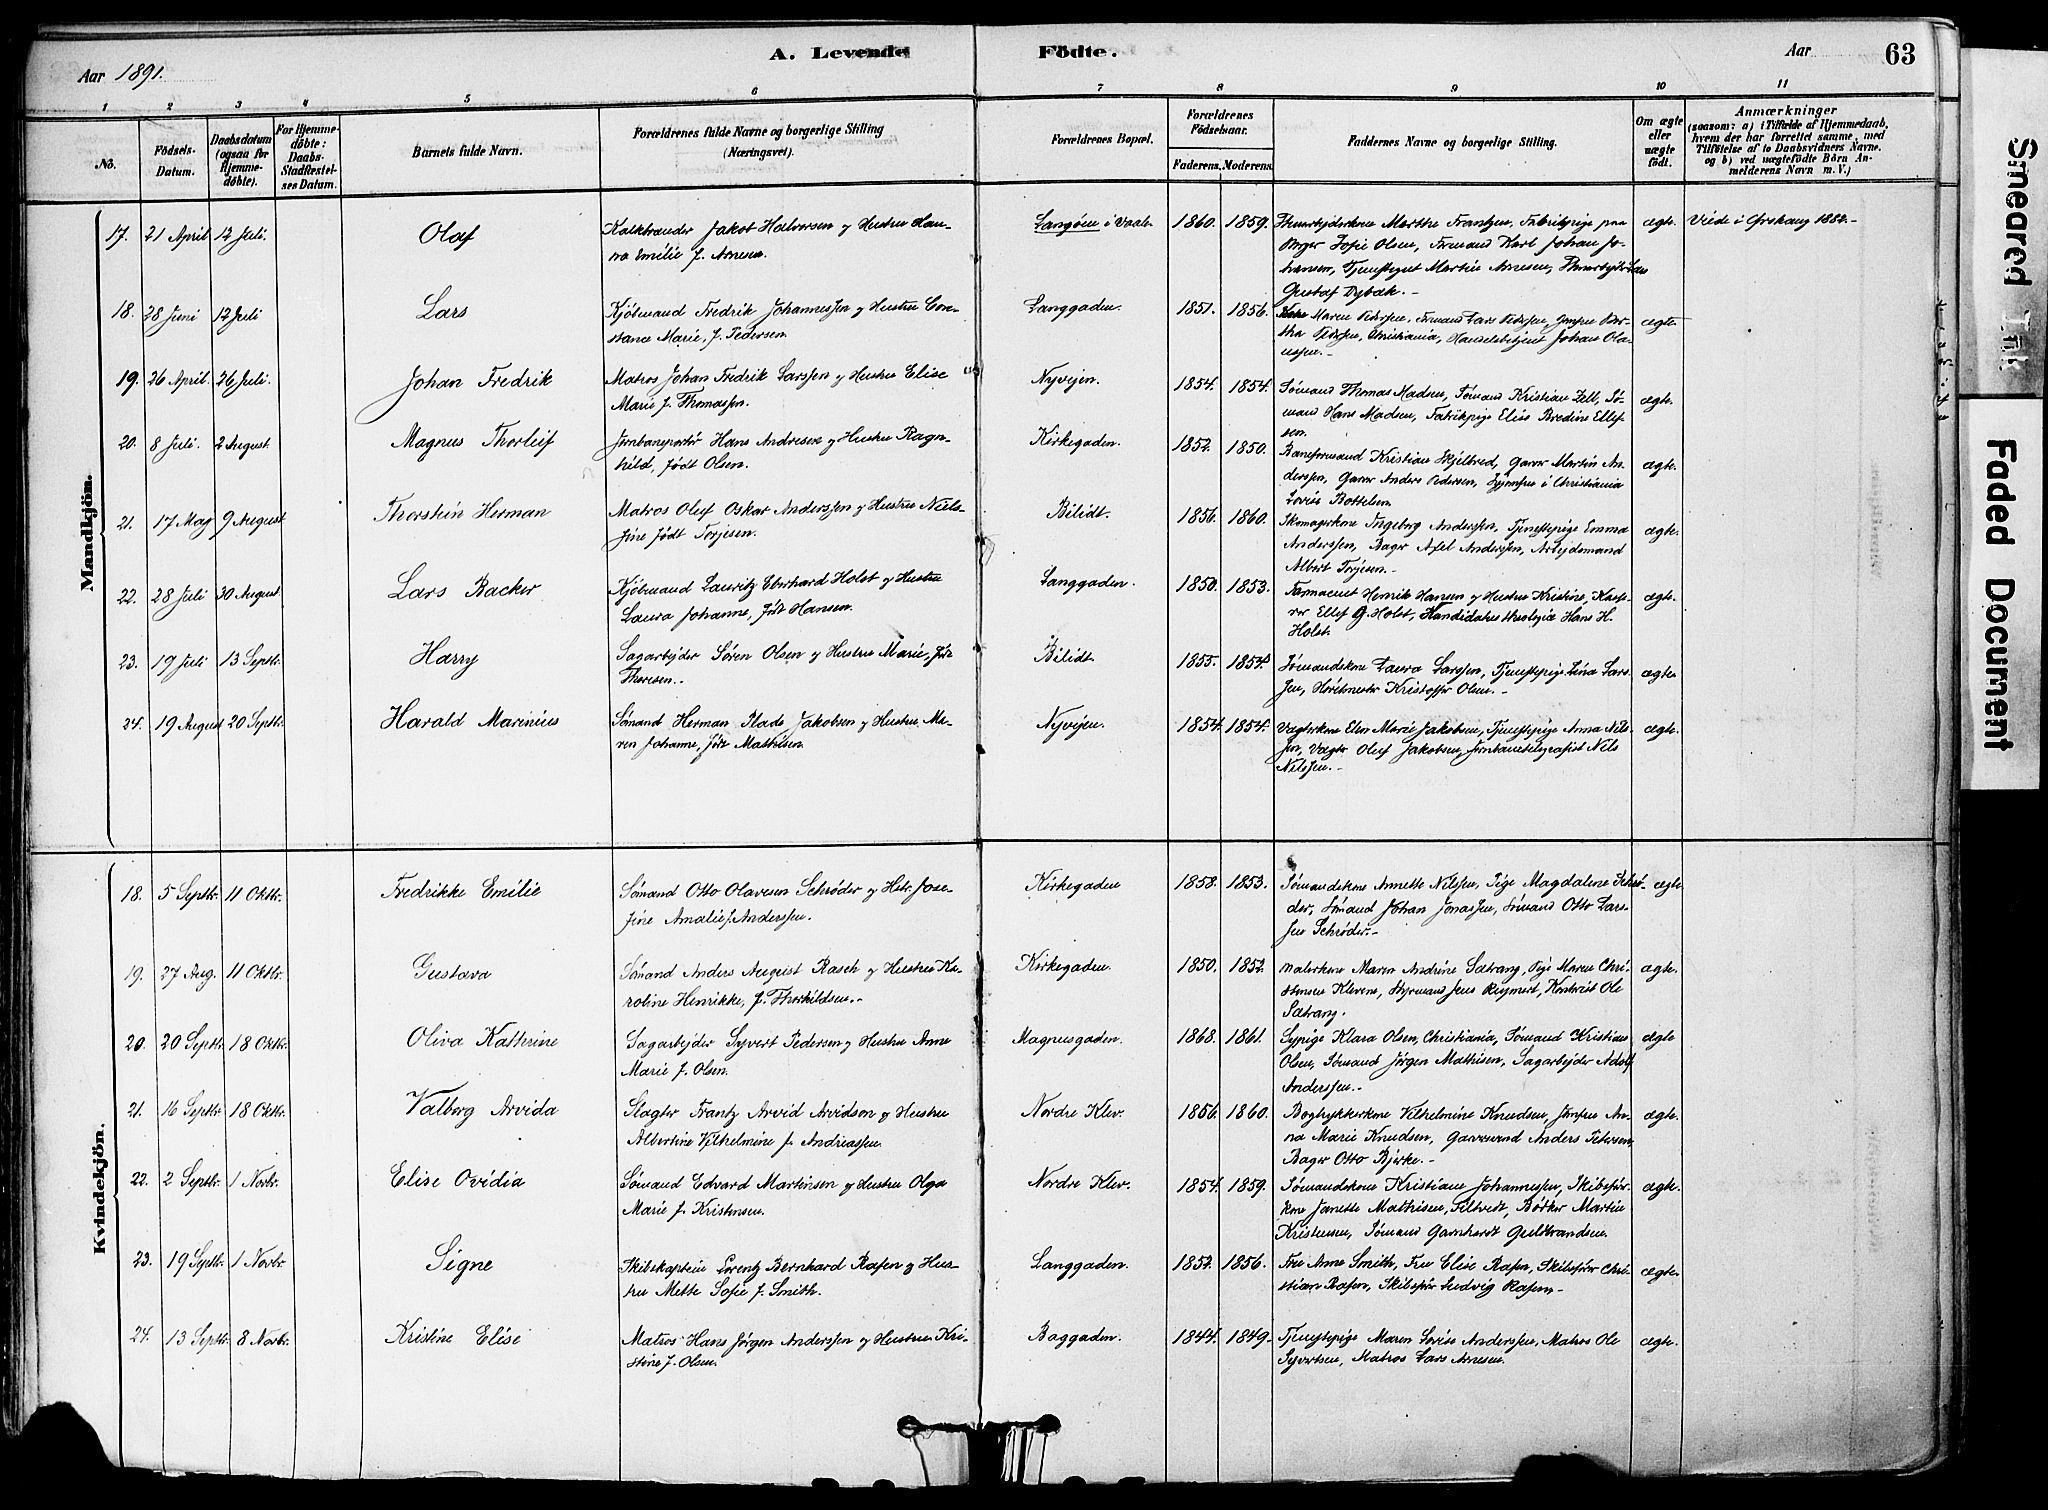 A. Levende Födte.
Aar 1891.
Aar
63
1 2 3 4 5 6 7 8 9 10 11
No.
Födsels-
Datum.
Daabsdatum
(ogsaa for
Hjemme-
døbte).
For Hjemme-
döbte:
Daabs-
Stadfæstel-
ses Datum.
Barnets fulde Navn.
Forældrenes fulde Navne og borgerlige Stilling
(Næringsvei).
Forældrenes Bopæl.
Forældrenes
Födselsaar.
Faderens. Moderens.
Faddernes Navne og borgerlige Stilling.
Om ægte
eller
uægte
födt.
Anmærkninger
(saasom: a) i Tilfælde af Hjemmedaab,
hvem der har forrettet samme, med
Tilföielse af to Daabsvidners Navne.
og b) ved uægtefödte Börn An-
melderens Navn m. V.)
Mandkjön.
17. 21 April 12 Juli. Olaf
Kalkbrænder Jakob Halvorsen og Hustru Han-
na Emilie f. Arnesen.
Langøen i Vaale 1860. 1859.
Marthe Frantzen, Fabrikpige paa
Sofie Olsen, Formand Karl Johan Jo-
hansen, Martin Arnesen,
Gustaf Dybæk.-
ægte. Viede i Ørskaug 1882.-
18. 28 Juni 12 Juli Lars
Kjøbmand Fredrik Johannessen og Hustru Con-
stance Marie, f. Pedersen.
Langgaden. 1851. 1856.
Maren Pedersen, Formand Lars Pedersen, Jomfru Ber-
tha Pedersen, Christiania, Handelsbetjent Johan Ola-
ussen.-
ægte
19. 26 April. 26 Juli. Johan Fredrik
Matros Johan Fredrik Larssen og Hustru Elise
Marie f. Thomassen.
Nyvejen. 1854. 1854.
Sømand Thomas Madsen, Sømand Kristian Zell, Sø-
mand Hans Madsen, Fabrikpige Elise Bredine Ellef-
sen.
ægte.
20. 8 Juli. 2 August. Magnus Thorleif
Jernbaneportør Hans Andresen og Hustru Ragn-
hild, født Olsen.
Kirkegaden. 1852. 1850.
Baneformand Kristian Skjelbred, Garver Martin An-
derssen, Garver Anders Pedersen, i Christiania
Lovise Bottelsen
ægte.
21. 17 Maj 9 August Thorstein Herman
Matros Oluf Oskar Anderssen og Hustru Niels-
sine født Torjesen.
Bilidt. 1856. 1860.
Skomagerkone Ingeborg Anderssen, Tjenestepige Emma
Anderssen, Bager Axel Anderssen, Arbejdsmand
Albert Torjesen.-
ægte.
22. 28 Juli 30 August Lars Backer
Kjøbmand Lauritz Eberhard Holst og Hustru
Laura Johanne, født Hansen.
Langgaden. 1850. 1853.
Farmaceut Henrik Hansen og Hustru Kristine, Kasse-
rer Ellef G. Holst, Kandidatus theologiæ Hans H.
Holst.
ægte.
23. 19 Juli 13 Septbr. Harry
Sagarbejder Søren Olsen og Hustru Marie, født
Thoresen.-
Bilidt. 1855. 1854
Sømandskone Laura Larssen, Tjenestepige Lina Lars-
sen, Kristoffer Olsen.-
ægte
24. 19 August 20 Septbr. Harald Marinius
Sømand Herman Plade Jakobsen og Hustru Ma-
ren Johanne, født Mathisen.
Nyvejen. 1854. 1854.
Vægterkone Elen Marie Jakobsen, Tjenestepige Anna Nils-
sen, Vægter Oluf Jakobsen, Jernbanetelegrafist Nils
Nilssen.-
ægte.
Kvindekjön.
18. 5 Septbr. 11 Oktbr. Fredrikke Emilie
Sømand Otto Olavesen Schrøder og Hstr. Jose-
fine Amalie f. Anderssen.
Kirkegaden 1858. 1853.
Sømandskone Annette Nilssen, Pige Magdalene Schrø-
der, Sømand Johan Jonassen, Sømand Otto Lars-
sen Schrøder.-
ægte.
19. 27 Aug. 11 Oktbr. Gustava
Sømand Anders August Rasch og Hustru Ka-
roline Henrikke, f. Thorkildsen.-
Kirkegaden. 1850. 1852.
Malerkone Maren Andrine Sætrang, Pige Maren Chri-
stensen Klevene, Styrmand Jens Reymert, Kontorist Ole
Sætrang.
ægte.
20. 20 Septbr. 18 Oktbr. Oliva Kathrine
Sagarbejder Syvert Pedersen og Hustru Anne
Marie f. Olsen.
Magnusgaden. 1868. 1861.
Sypige Klara Olsen, Christiania, Sømand Kristian
Olsen, Sømand Jørgen Mathisen, Sagarbejder Adolf
Anderssen.-
ægte
21. 16 Septbr. 18 Oktbr. Valborg Arvida
Slagter Frantz Arvid Arvidson og Hustru
Albertine Vilhelmine f. Andreassen.
Nordre Klev. 1856. 1860.
Bogtrykkerkone Vilhelmine Knudsen, Jomfru An-
na Marie Knudsen, Garversvend Anders Petersen,
Bager Otto Bjerke.-
ægte.
22. 2 Septbr. 1 Novbr. Elise Ovidia
Sømand Edvard Martinsen og Hustru Olga
Marie f. Kristensen.
Nordre Klev. 1854. 1859.
Sømandskone Kristiane Johannessen, Skibsfør-
kone Janette Mathisen, Filtvedt, Bødker Martin
Kristensen, Sømand Gulbrandsen.
ægte.
23. 19 Septbr. 1 Novbr. Signe
Skibskaptein Lorentz Bernhard Rasen og Hus-
tru Mette Sofie f. Smith.
Langgaden. 1852. 1856.
Fru Anne Smith, Fru Elise Rasen, Skibsfør. Chri-
stian Rasen, Skibsfør Ludvig Rasen.-
ægte.
24. 13 Septbr. 8 Novbr. Kristine Elise
Matros Hans Jørgen Anderssen og Hustru Kri-
stine f. Olsen.
Baggaden. 1844. 1849.
Tjenestepige Maren Lovise Anderssen, Matros Ole
Syvertsen, Matros Lars Arnesen.
ægte.
Smeared Ink
Faded Document